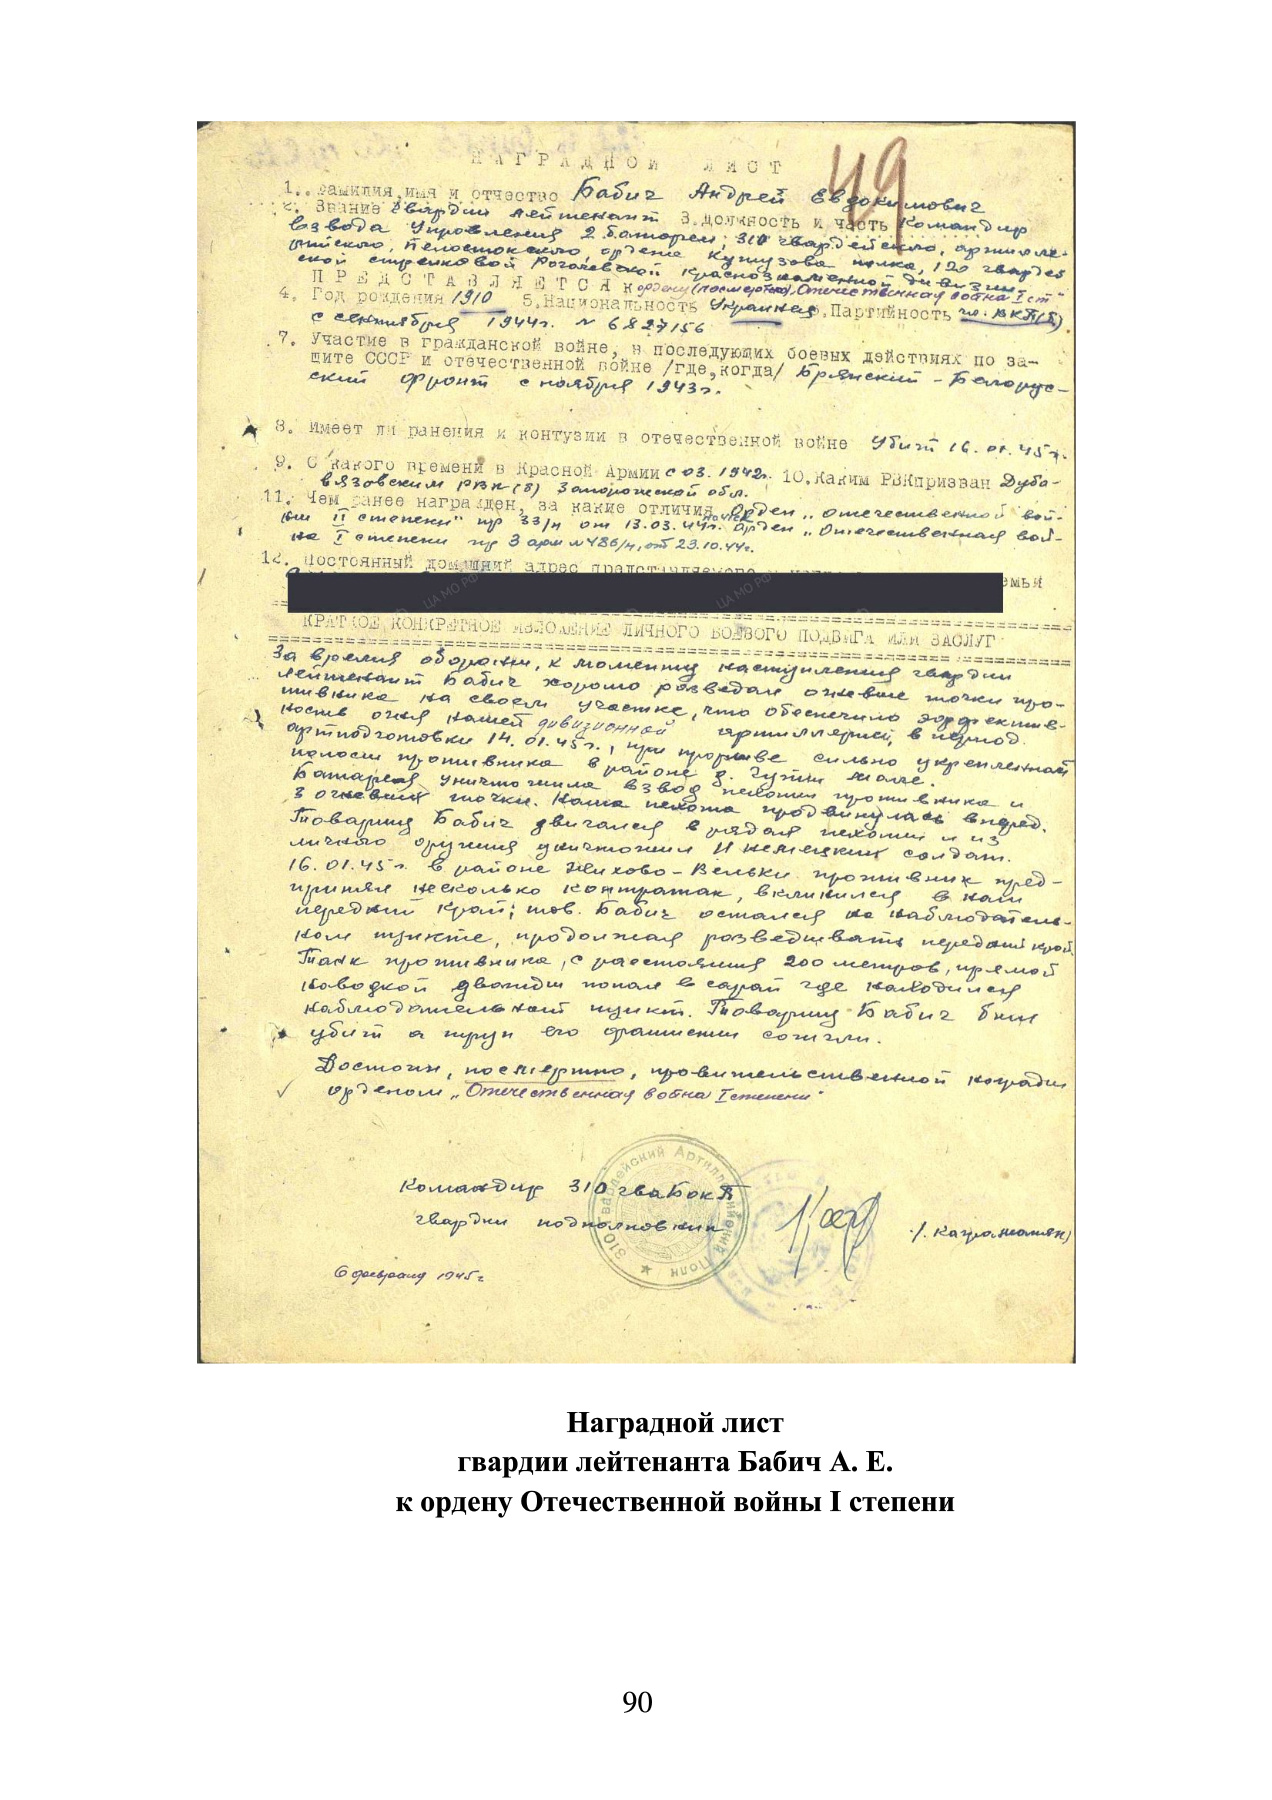 49
НАГРАДНОЙ ЛИСТ
1. Фамилия, имя и отчество Бабич Андрей Евдокимович
2. Звание гвардии лейтенант 3. Должность и часть Командир
взвода управления 2 батареи, 310 гвардейского, артилле-
рийского, Белостокского, ордена Кутузова полка, 120 гвардей
ской стрелковой Рогачевской краснознаменной дивизии
ПРЕДСТАВЛЯЕТСЯ к ордену (посмертно) Отечественная война I ст"
4. Год рождения 1910 5. Национальность Украинец. Партийность чл. ВКП(б)
с сентября 1944г. № 6827156
7. Участие в гражданской войне, в последующих боевых действиях по за-
щите СССР и отечественной войне /где, когда/ Брянский - Белорус-
ский фронт с ноября 1943г.
8. Имеет ли ранения и контузии в отечественной войне Убит 16.01.45г.
9. С какого времени в Красной Армии с 03.1942г. 10. Каким РВК призван Дуба-
вязовским РВК (8) Запорожской обл.
11. Чем ранее награжден, за какие отличия Орден „Отечественной вой-
ны II степени" пр 33/н от 13.03.44г. Орден „Отечественная вой-
на I степени пр 3 арм № 486/н, от 23.10.44г.
12. Постоянный домашний адрес представляемого семьи
КРАТКОЕ КОНКРЕТНОЕ ИЗЛОЖЕНИЕ ЛИЧНОГО БОЕВОГО ПОДВИГА ИЛИ ЗАСЛУГ
За время обороны, к моменту наступления гвардии
лейтенант Бабич хорошо разведал огневые точки про-
тивника на своем участке, что обеспечило эффектив-
ность огня нашей дивизионной артиллерией, в период
артподготовки 14.01.45г., при прорыве сильно укрепленной
полосы противника в районе д.
Батарея уничтожила взвод пехоты противника и
3 огневые точки. Наша пехота продвинулась вперед.
Товарищ Бабич двигался в рядах пехоты и из
личного оружия уничтожил 11 немецких солдат.
16.01.45г. в районе Нехово-Вельки противник пред-
принял несколько контратак, вклинился в наш
передний край; тов. Бабич остался на наблюдатель-
ном пункте, продолжая разведывать передний край.
Танк противника, с расстояния 200 метров, прямой
наводкой дважды попал в сарай где находился
наблюдательный пункт. Товарищ Бабич был
убит а труп его фашисты сожгли.
Достоин, посмертно, правительственной награды
орденом „Отечественная война I степени"
Командир 310 гваБокП
гвардии подполковник
/. Каграманян/
6 февраля 1945г
310 Гвардейский Артиллерийский Полк
Наградной лист
гвардии лейтенанта Бабич А. Е.
к ордену Отечественной войны I степени
90